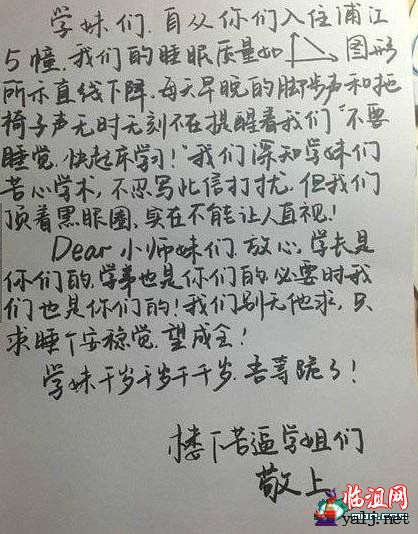 学妹们.自从你们入住浦江
5幢.我们的睡眠质量如 图形
所示直线下降.每天早晚的脚步声和拖
椅子声无时无刻不在提醒着我们"不要
睡觉.快起床学习!"我们深知学妹们
苦心学术,不忍写此信打扰.但我们
顶着黑眼圈,实在不能让人直视!
Dear小师妹们.放心,学长是
你们的,学弟也是你们的.必要时我
们也是你们的!我们别无他求,只
求睡个安稳觉.望成全!
学妹千岁千岁千千岁.吾等跪了!
楼下苦逼学姐们
敬上
临沮网
yalj.net